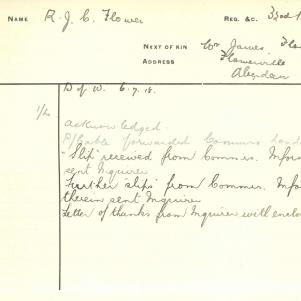 NAME R. J. C. Flower REG. &C. 32nd
NEXT OF KIN Mr James
ADDRESS Flowerville
Aberdeen
D of W. 6.7.18.
1/2
acknowledged.
P/Cable forwarded Commrs Lond
"Slip" received from Commrs. Infor
sent Inquirer
Further "slips" from Commrs. Info
therein sent Inquirer
Letter of thanks from Inquirer with enclo